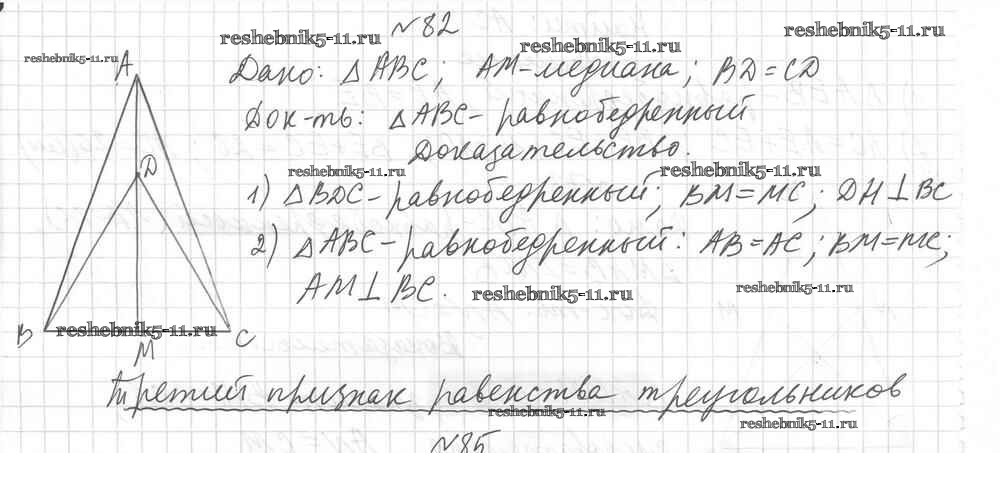 №82
reshebnik5-11.ru reshebnik5-11.ru reshebnik5-11.ru
reshebnik5-11.ru
A
Дано: △ABC; AM-медиана; BD=CD
Док-ть: △ABC-равнобедренный
Доказательство.
D
reshebnik5-11.ru reshebnik5-11.ru
1) △BDC-равнобедренный; BM=MC; DH⊥BC
2) △ABC-равнобедренный: AB=AC; BM=MC;
AM⊥BC.
reshebnik5-11.ru reshebnik5-11.ru
B reshebnik5-11.ru C
M
Третий признак равенства треугольников
reshebnik5-11.ru reshebnik5-11.ru
№85